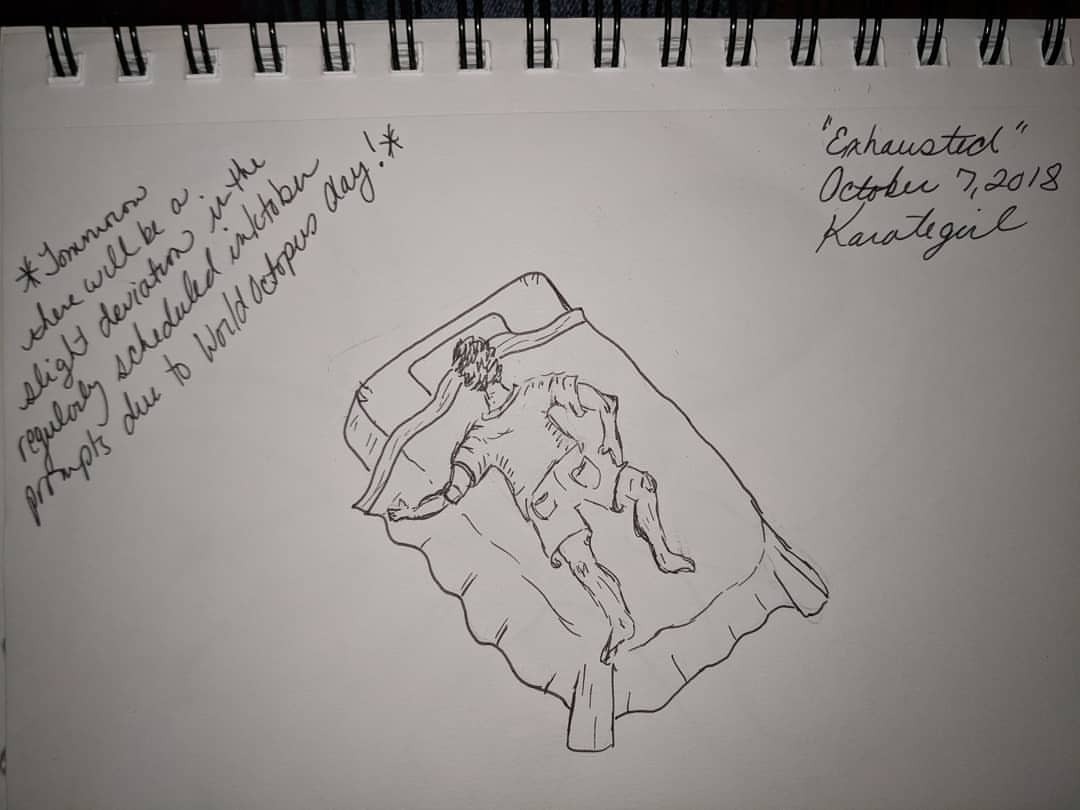 *Tommorow
there will be a
slight deviation in the
regularly scheduled inktober
prompts due to World Octopus day!*
"Exhausted"
October 7, 2018
Karategirl